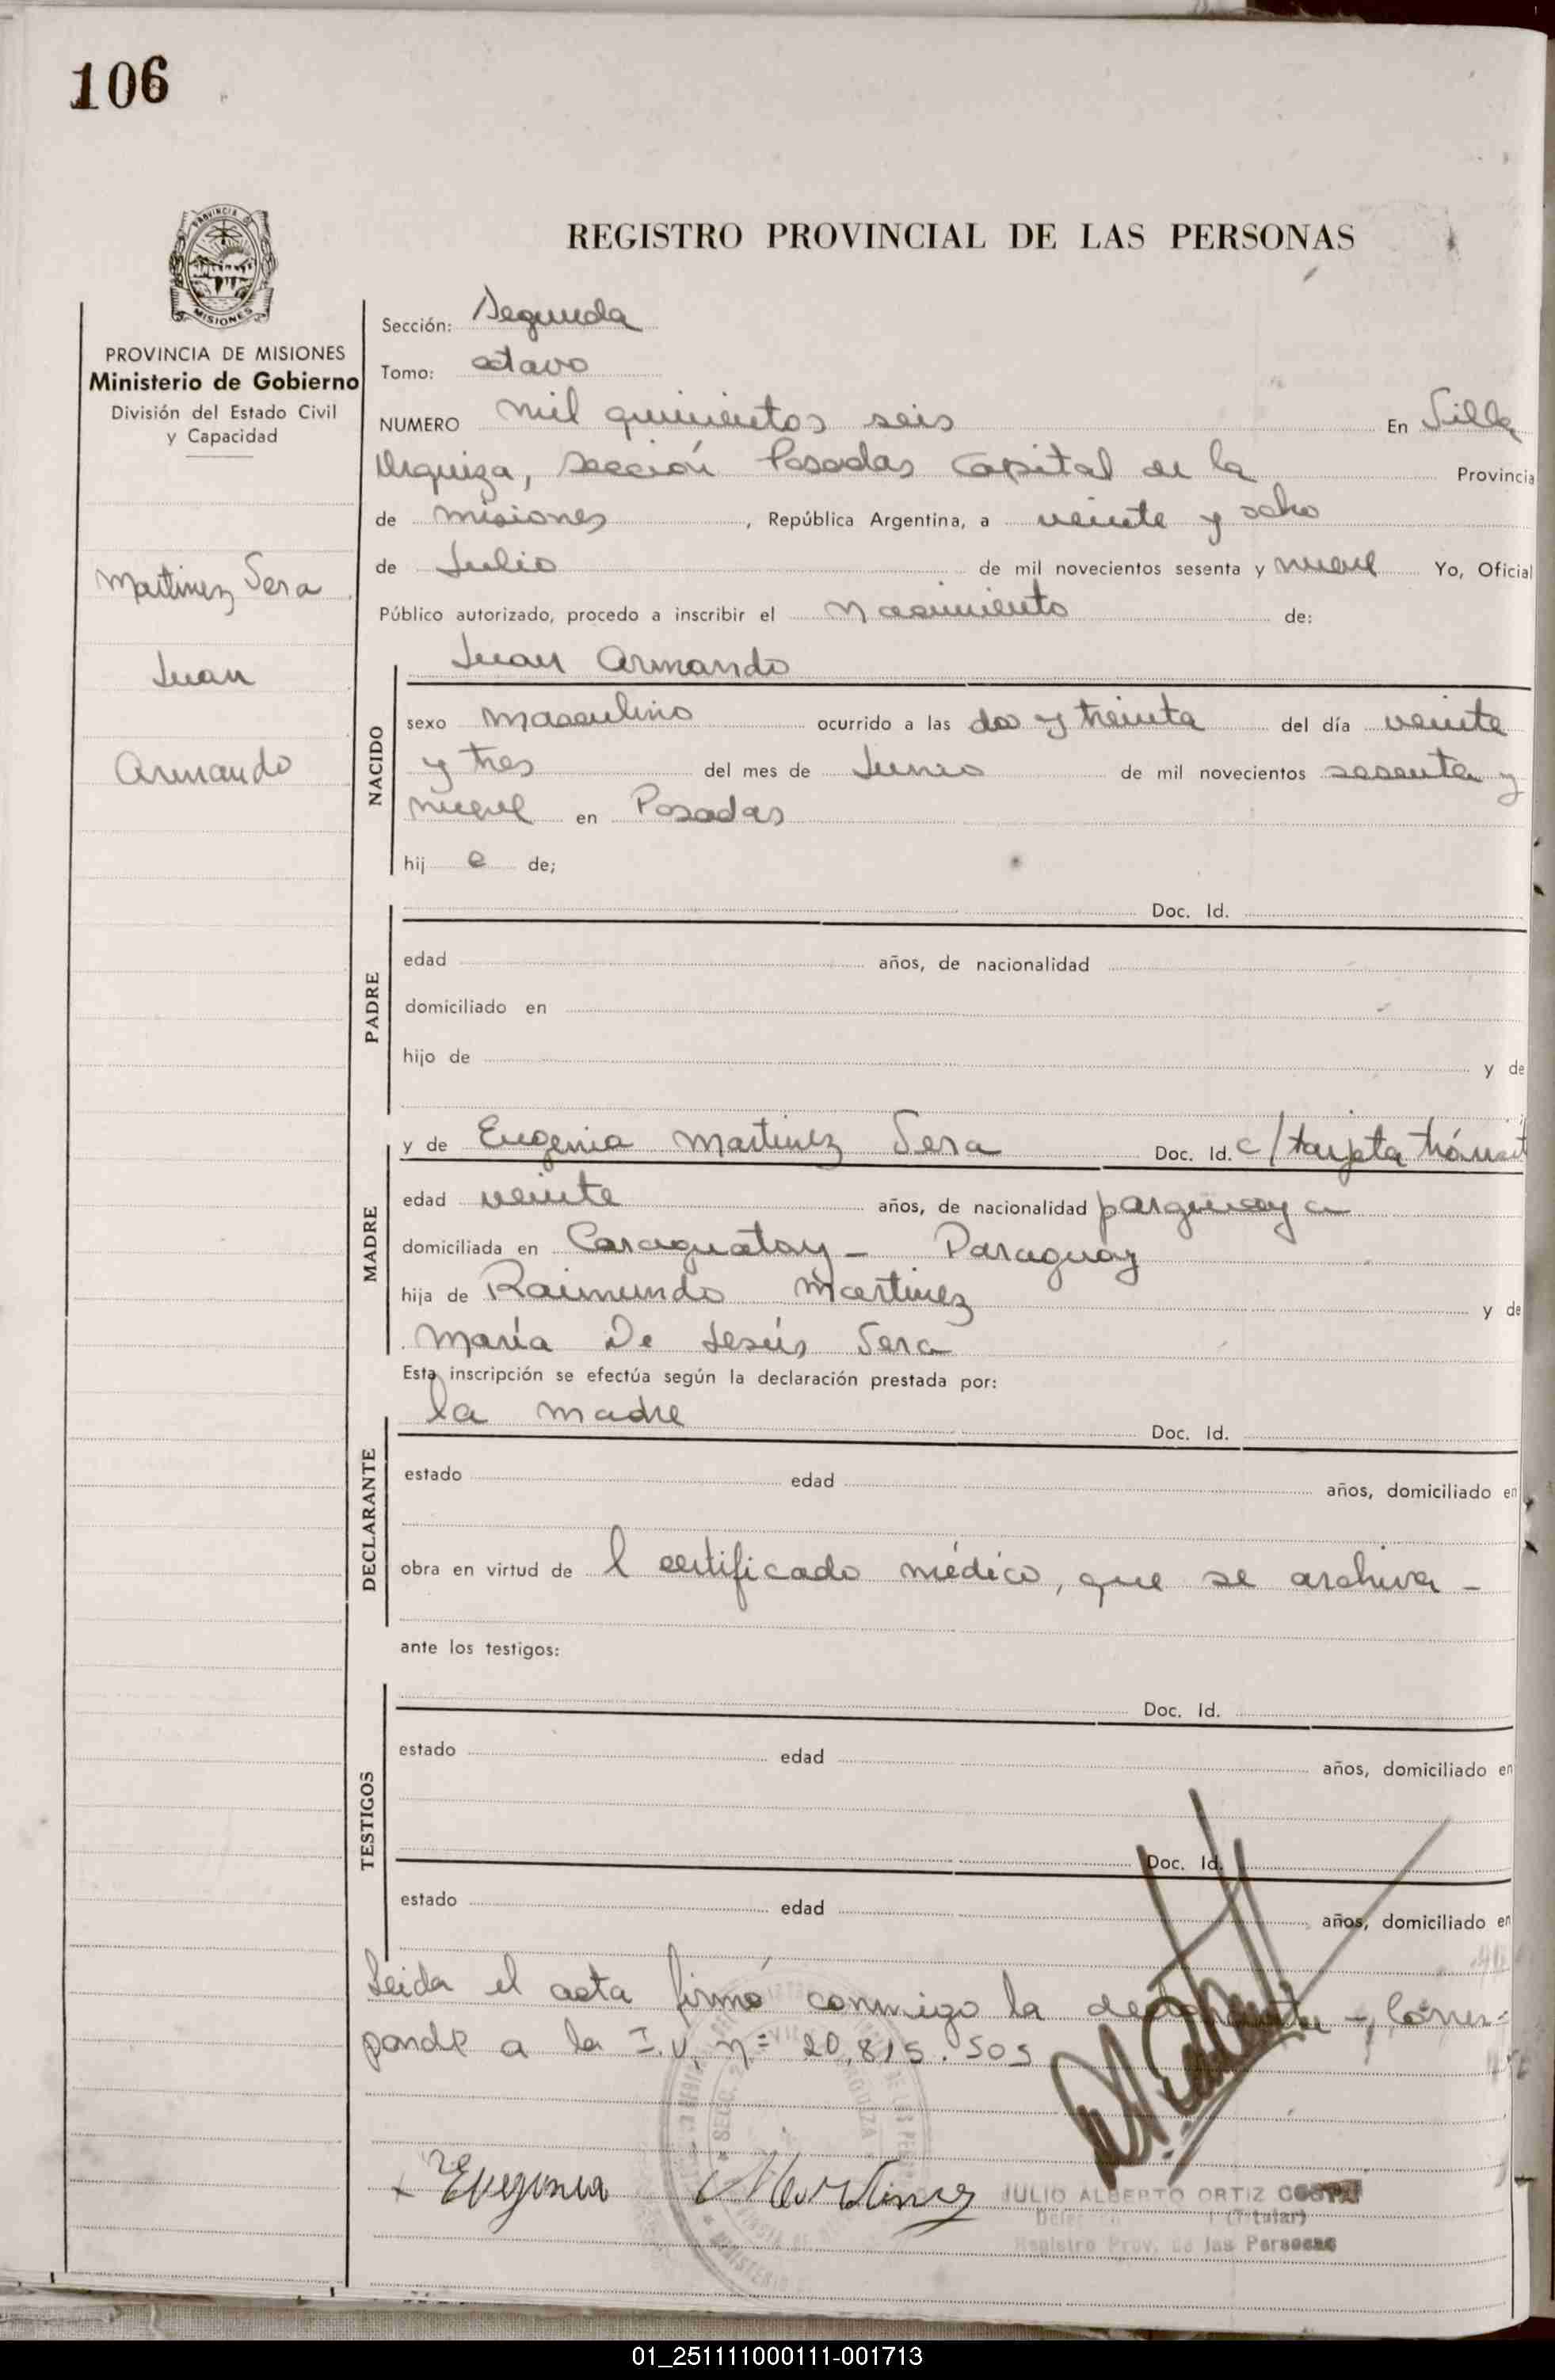 106
PROVINCIA DE MISIONES
REGISTRO PROVINCIAL DE LAS PERSONAS
PROVINCIA DE MISIONES
Ministerio de Gobierno
División del Estado Civil
y Capacidad
Martinez Vera
Juan
Armando
Sección: Segunda
Tomo: octavo
NUMERO mil quinientos seis En Villa
Urquiza, Sección Posadas Capital de la Provincia
de misiones, República Argentina, a veinte y ocho
de Julio de mil novecientos sesenta y nueve Yo, Oficial
Público autorizado, procedo a inscribir el nacimiento de:
Juan Armando
NACIDO
sexo masculino ocurrido a las dos y treinta del día veinte
y tres del mes de Junio de mil novecientos sesenta y
nueve en Posadas
hij o de;
PADRE
Doc. Id.
edad años, de nacionalidad
domiciliado en
hijo de y de
MADRE
y de Eugenia Martinez Vera Doc. Id. c/tarjeta tránsit
edad veinte años, de nacionalidad
domiciliada en Caraguatay - Paraguay
hija de Raimundo Martinez y de
María De Jesús Vera
Esta inscripción se efectúa según la declaración prestada por:
DECLARANTE
la madre Doc. Id.
estado edad años, domiciliado en
obra en virtud de l certificado médico, que se archiva -
ante los testigos:
TESTIGOS
Doc. Id.
estado edad años, domiciliado en
Doc. Id.
estado edad años, domiciliado en
Leida el acta firmó conmigo la declarante -, Corres=
ponde a la I.V. nº 20.815.505
Eugenia Martinez
JULIO ALBERTO ORTIZ COSTA
(Titular)
Registro Prov. de las Personas
01_251111000111-001713